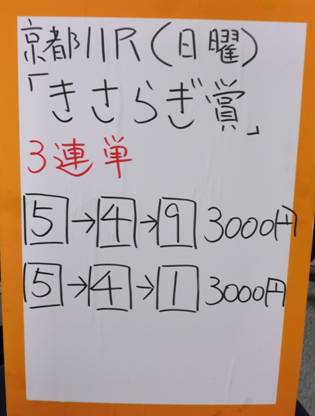 京都11R(日曜)
「きさらぎ賞」
3連単
5→4→9 3000円
5→4→1 3000円